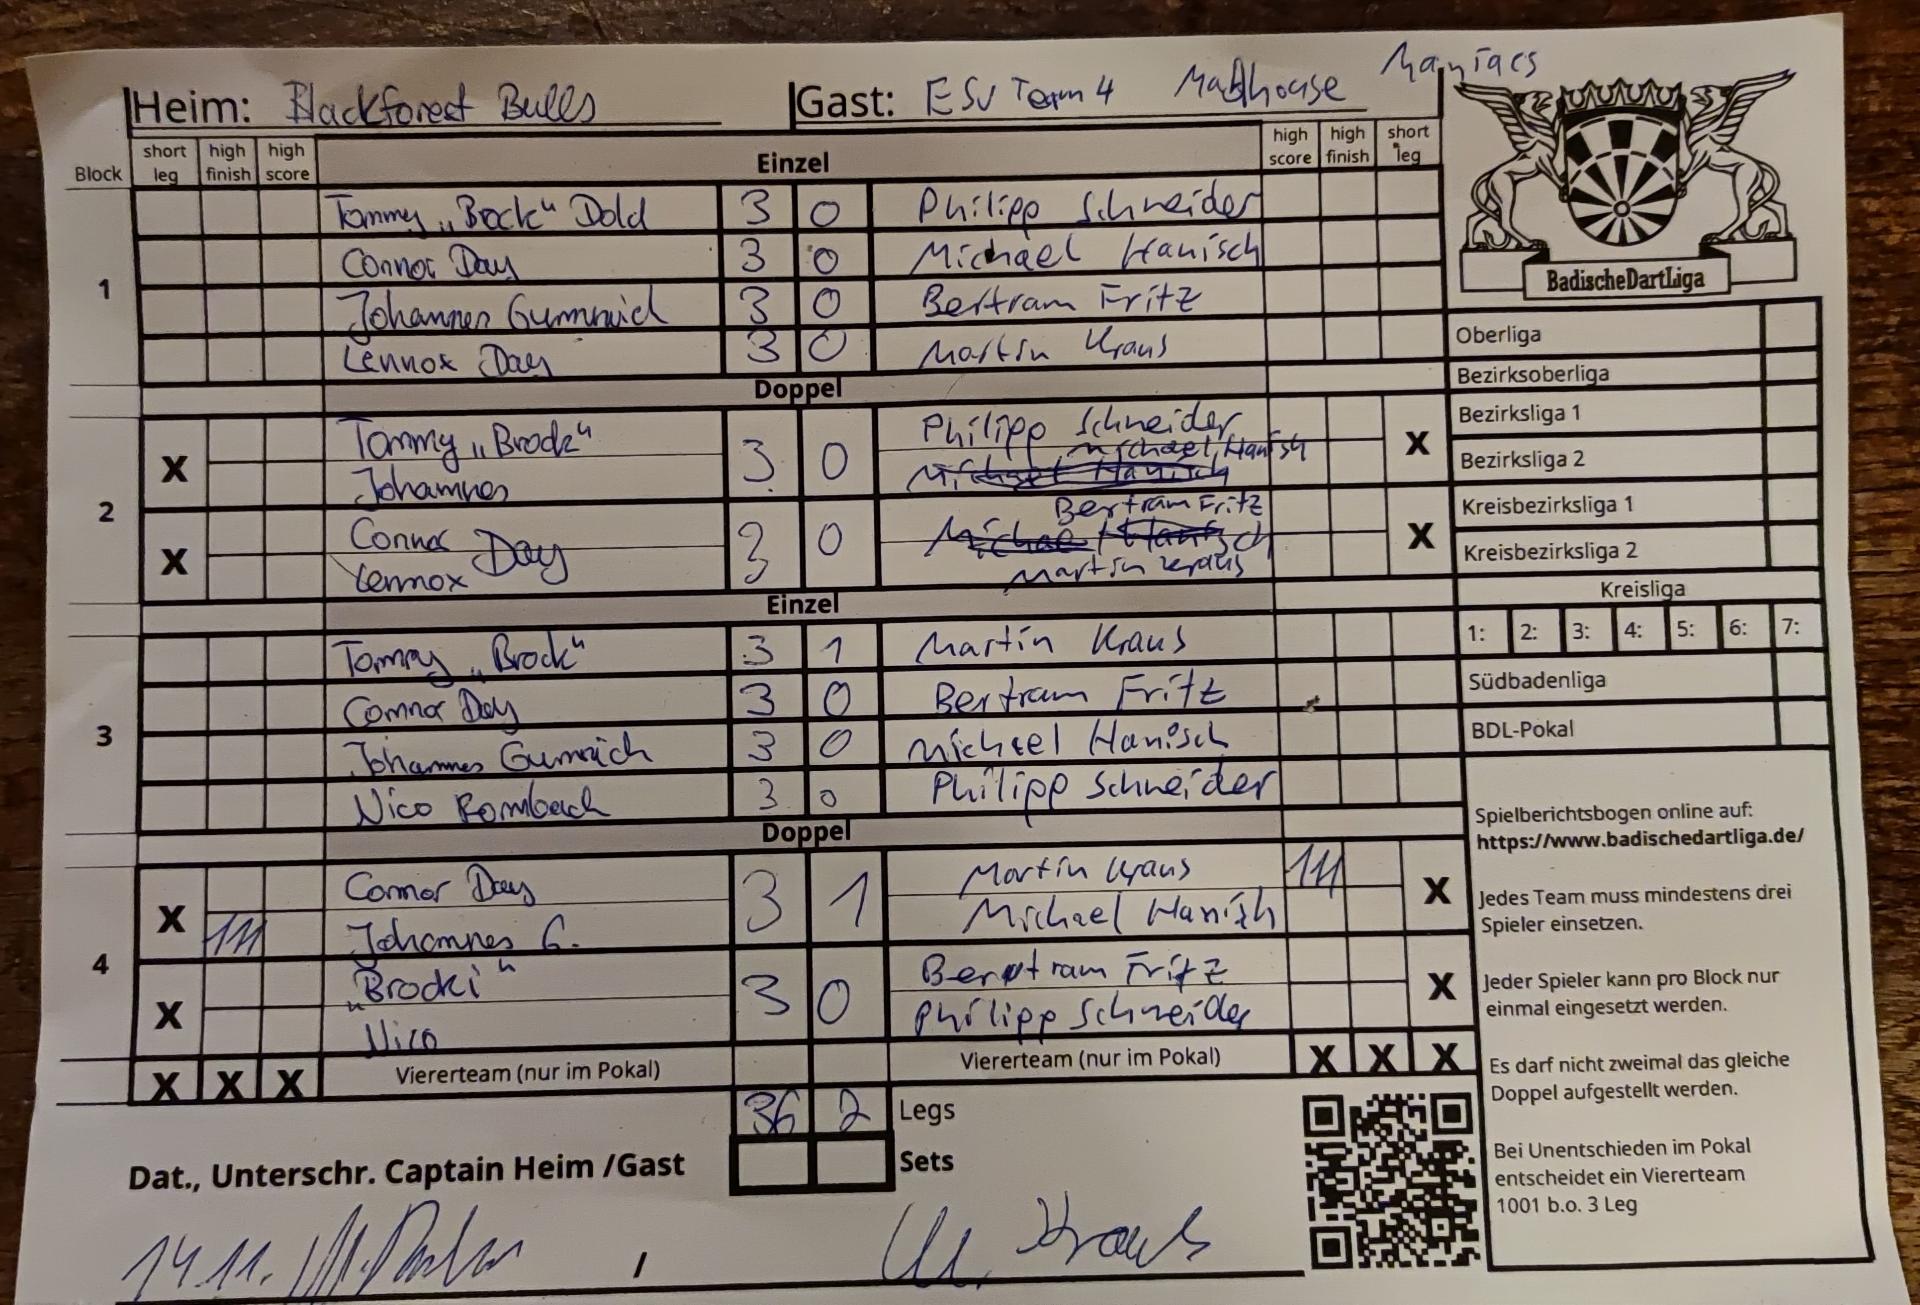 Heim: Blackforest Bulls Gast: ESV Team 4 Madhouse Maniacs
Block short leg high finish high score Einzel high score high finish short leg
1
Tommy „Brock“ Dold 3 0 Philipp Schneider
Connor Day 3 0 Michael Hanisch
Johannes Gumrich 3 0 Bertram Fritz
Lennox Day 3 0 Martin Kraus
Doppel
2
X Tommy „Brock“ 3 0 Philipp Schneider X
Johannes Michael Hanisch
Michael Hanisch
X Connor Day 3 0 Bertram Fritz X
Michael Hanisch
Lennox Martin Kraus
Einzel
3
Tommy „Brock“ 3 1 Martin Kraus
Connor Day 3 0 Bertram Fritz
Johannes Gumrich 3 0 Michael Hanisch
Nico Rombach 3 0 Philipp Schneider
Doppel
4
X Connor Day 3 1 Martin Kraus 111 X
111 Johannes G. Michael Hanish
X „Brocki“ 3 0 Bertram Fritz X
Nico Philipp Schneider
X X X Viererteam (nur im Pokal) Viererteam (nur im Pokal) X X X
36 2 Legs
Sets
Dat., Unterschr. Captain Heim /Gast
14.11. / M. Kraus
BadischeDartLiga
Oberliga
Bezirksoberliga
Bezirksliga 1
Bezirksliga 2
Kreisbezirksliga 1
Kreisbezirksliga 2
Kreisliga
1: 2: 3: 4: 5: 6: 7:
Südbadenliga
BDL-Pokal
Spielberichtsbogen online auf:
https://www.badischedartliga.de/
Jedes Team muss mindestens drei
Spieler einsetzen.
Jeder Spieler kann pro Block nur
einmal eingesetzt werden.
Es darf nicht zweimal das gleiche
Doppel aufgestellt werden.
Bei Unentschieden im Pokal
entscheidet ein Viererteam
1001 b.o. 3 Leg